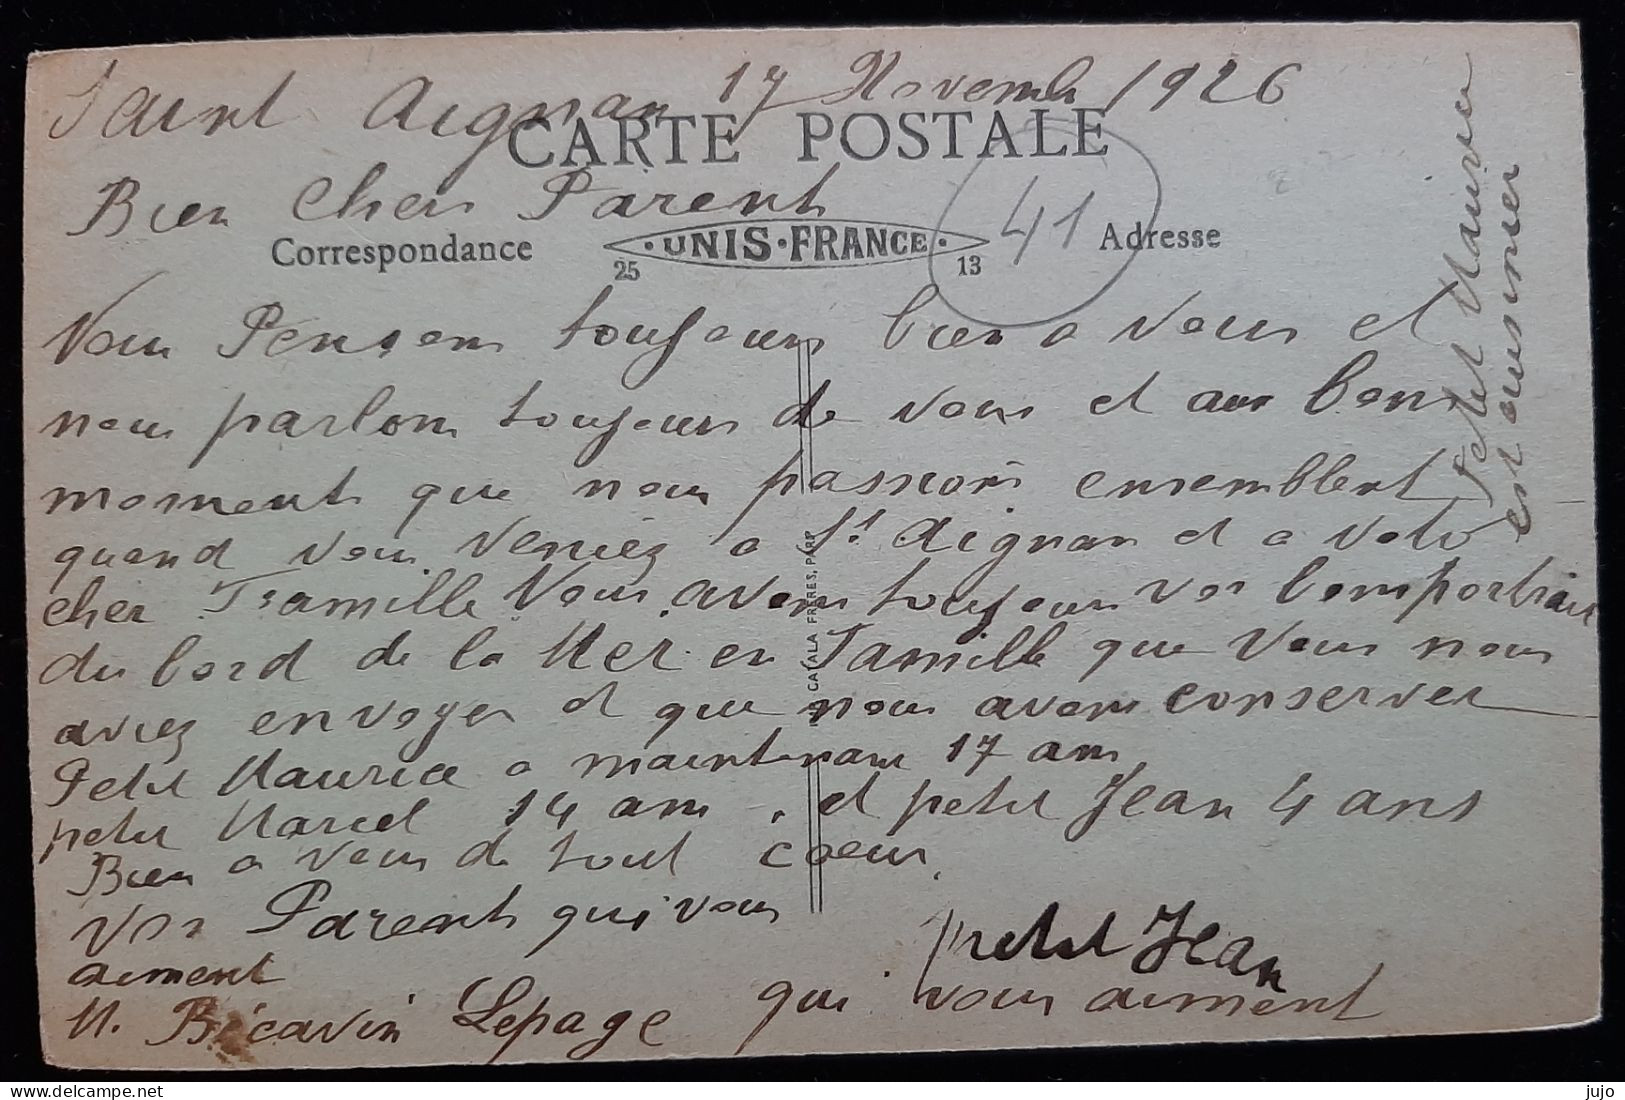 Saint Aignan 17 Novembr 1926
CARTE POSTALE
Bien Cher Parent
Correspondance
UNIS-FRANCE
25
13
41
Adresse
Nous Pensons toujours bien a vous et
nous parlons toujours de vous et aux bons
moments que nous passions ensemblent
quand vous veniez a St Aignan et a votre
cher Framille Nous avons toujours vos
du bord de la Mer en Famille que vous nous
aviez envoyer et que nous avons conserver
Petit Maurice a maintenant 17 ans
petit Marcel 14 ans, et petit Jean 4 ans
Bien a vous de tout coeur,
Vos Parents qui vous
aiment
M. Bécavin Lepage
petit Jean
qui vous aiment
Petit Maurice
est cuisinier
CATALA FRERES, PARIS
jujo